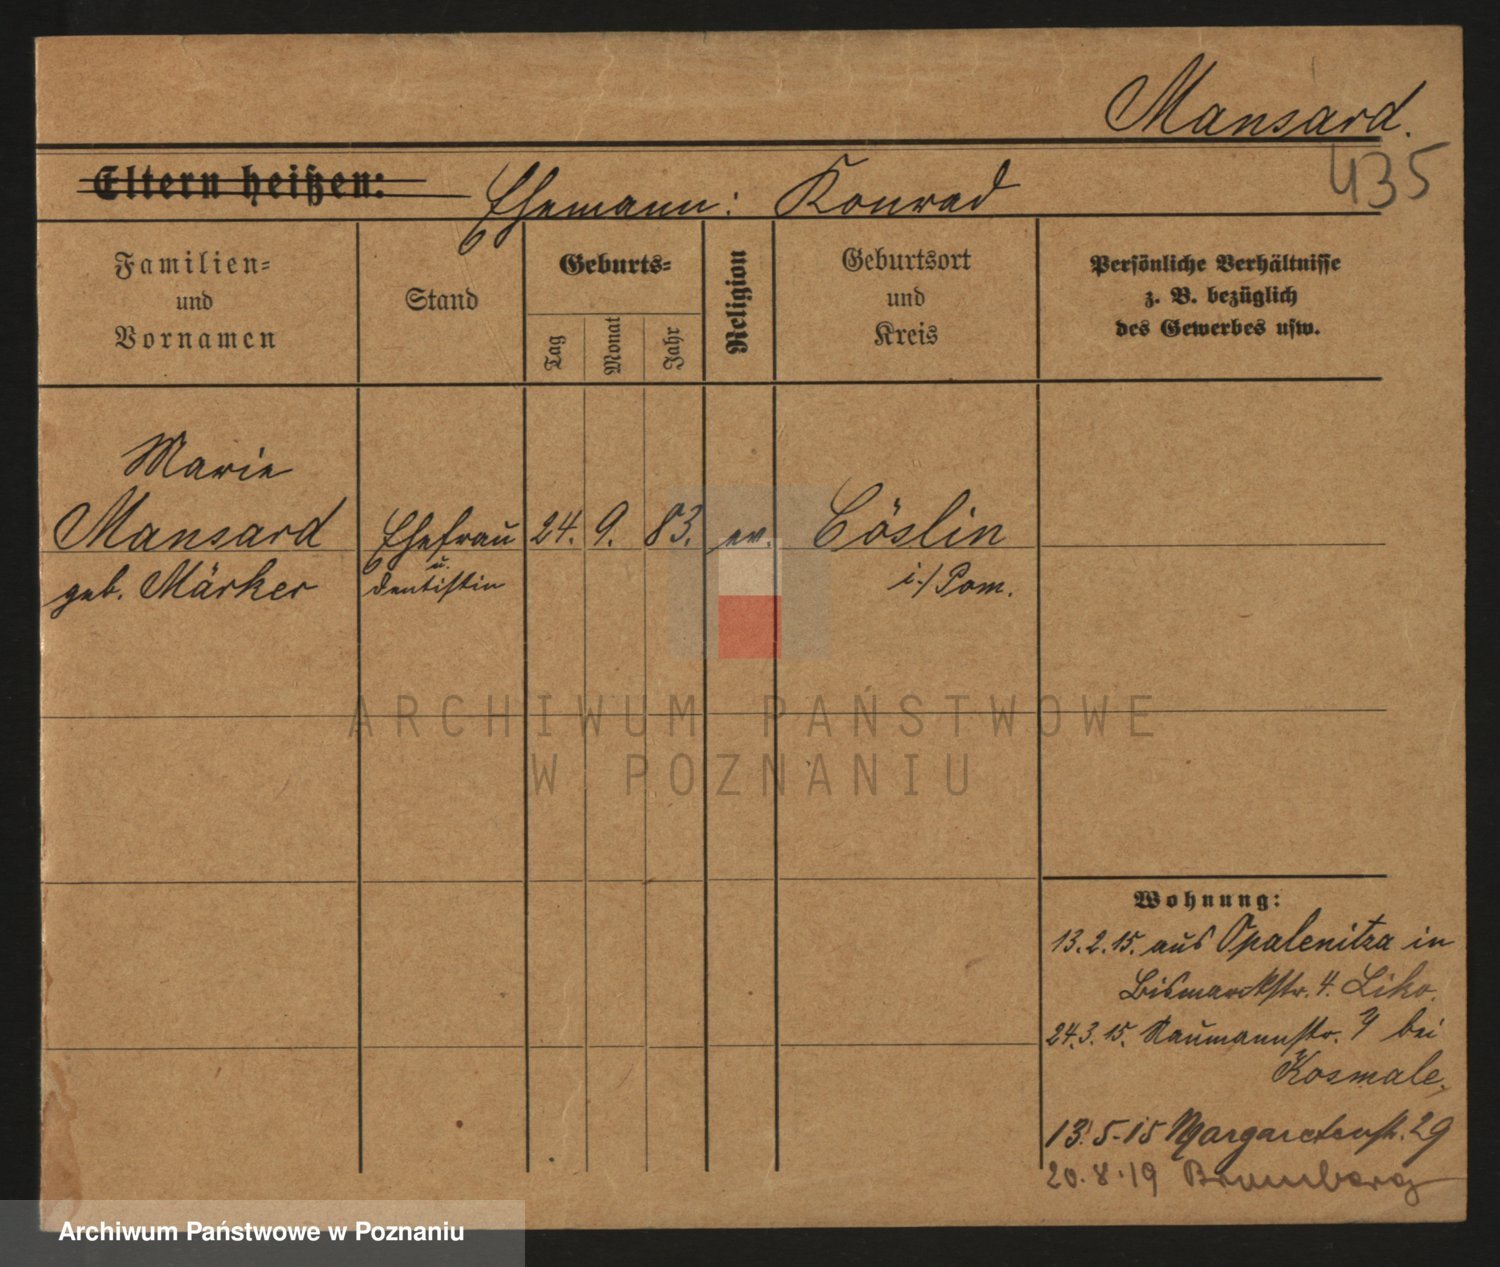 Mansard.
435
Eltern heißen: Ehemann: Konrad
Familien-
und
Vornamen
Stand
Geburts-
Tag
Monat
Jahr
Religion
Geburtsort
und
Kreis
Persönliche Verhältnisse
z. B. bezüglich
des Gewerbes usw.
Marie
Mansard Ehefrau 24. 9. 83. ev. Cöslin
u.
geb. Märker Dentistin i./Pom.
ARCHIWUM PAŃSTWOWE
W POZNANIU
Wohnung:
13.2.15. aus Opalenitza in
Bismarckstr. 4.
24.3.15. Naumannstr. bei
Kosmale,
13.5-15 Margaretenstr. 29
20.8.19 Bromberg
Archiwum Państwowe w Poznaniu